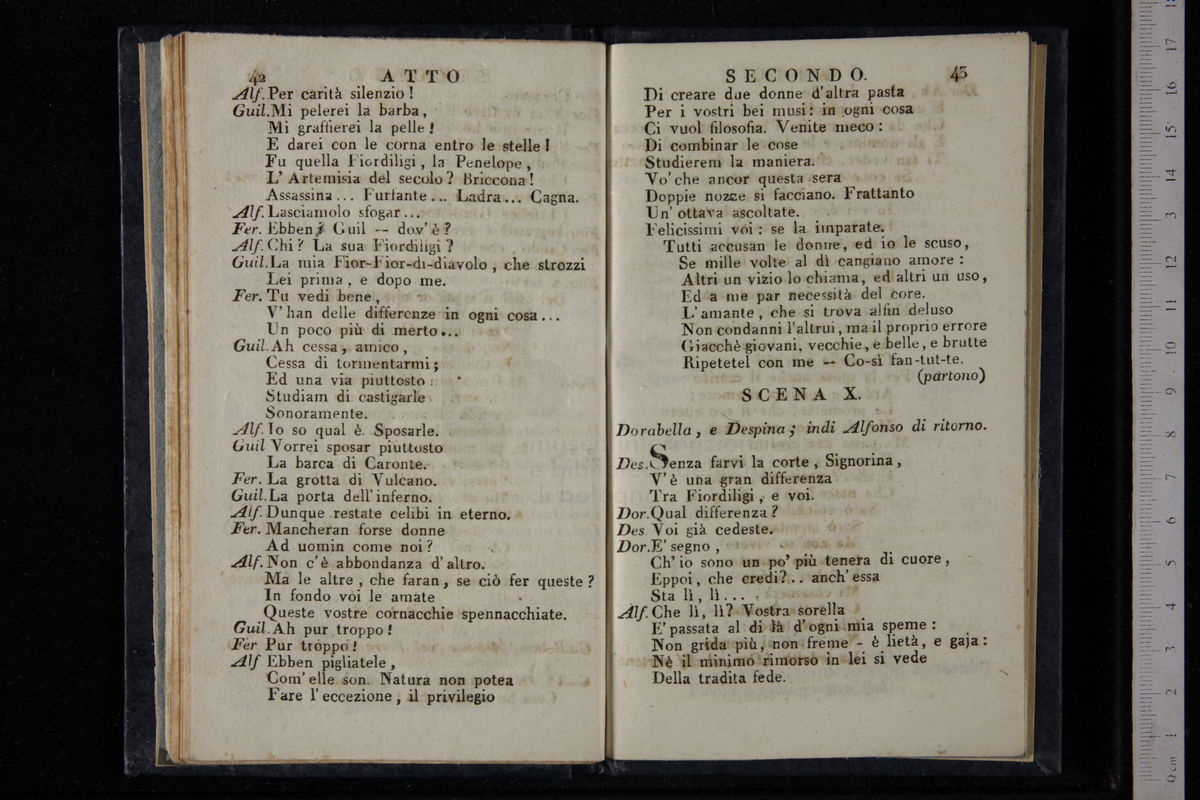 42 ATTO
Alf. Per carità silenzio!
Guil. Mi pelerei la barba,
Mi graffierei la pelle!
E darei con le corna entro le stelle!
Fu quella Fiordiligi, la Penelope,
L' Artemisia del secolo? Briccona!
Assassina... Furfante... Ladra... Cagna.
Alf. Lasciamolo sfogar...
Fer. Ebben? Guil -- dov' è?
Alf. Chi? La sua Fiordiligi?
Guil. La mia Fior-Fior-di-diavolo, che strozzi
Lei prima, e dopo me.
Fer. Tu vedi bene,
V' han delle differenze in ogni cosa...
Un poco più di merto...
Guil. Ah cessa, amico,
Cessa di tormentarmi;
Ed una via piuttosto
Studiam di castigarle
Sonoramente.
Alf. Io so qual è. Sposarle.
Guil Vorrei sposar piuttosto
La barca di Caronte.
Fer. La grotta di Vulcano.
Guil. La porta dell' inferno.
Alf. Dunque restate celibi in eterno.
Fer. Mancheran forse donne
Ad uomin come noi?
Alf. Non c' è abbondanza d' altro.
Ma le altre, che faran, se ciò fer queste?
In fondo voi le amate
Queste vostre cornacchie spennacchiate.
Guil. Ah pur troppo!
Fer Pur troppo!
Alf Ebben pigliatele,
Com' elle son. Natura non potea
Fare l' eccezione, il privilegio
SECONDO. 43
Di creare due donne d' altra pasta
Per i vostri bei musi: in ogni cosa
Ci vuol filosofia. Venite meco:
Di combinar le cose
Studierem la maniera.
Vo' che ancor questa sera
Doppie nozze si facciano. Frattanto
Un' ottava ascoltate.
Felicissimi voi: se la imparate.
Tutti accusan le donne, ed io le scuso,
Se mille volte al dì cangiano amore:
Altri un vizio lo chiama, ed altri un uso,
Ed a me par necessità del core.
L' amante, che si trova alfin deluso
Non condanni l'altrui, ma il proprio errore
Giacchè giovani, vecchie, e belle, e brutte
Ripetetel con me -- Co-sì fan-tut-te.
(partono)
SCENA X.
Dorabella, e Despina; indi Alfonso di ritorno.
Des. Senza farvi la corte, Signorina,
V' è una gran differenza
Tra Fiordiligi, e voi.
Dor. Qual differenza?
Des. Voi già cedeste.
Dor. E' segno,
Ch' io sono un po' più tenera di cuore,
Eppoi, che credi?.. anch' essa
Sta lì, lì...
Alf. Che lì, lì? Vostra sorella
E' passata al di là d' ogni mia speme:
Non grida più, non freme - è lietà, e gaja:
Nè il minimo rimorso in lei si vede
Della tradita fede.